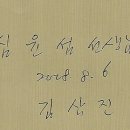 심 윤 섭 선생님
2008. 8. 6
김 삼 진